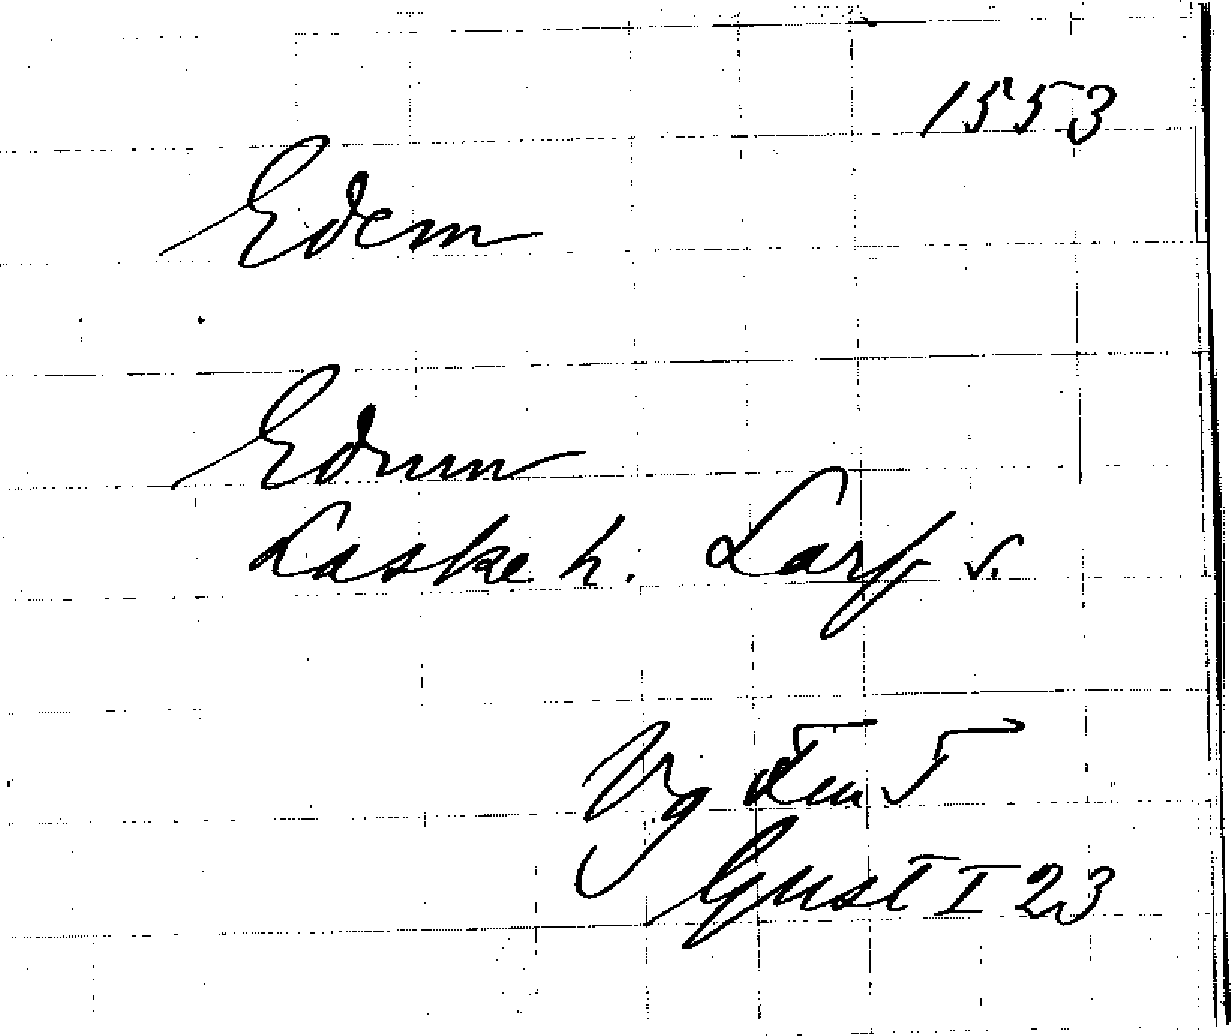 1553
Edem
Edum
Laske h. Larf s.
Vg
Gust I 23